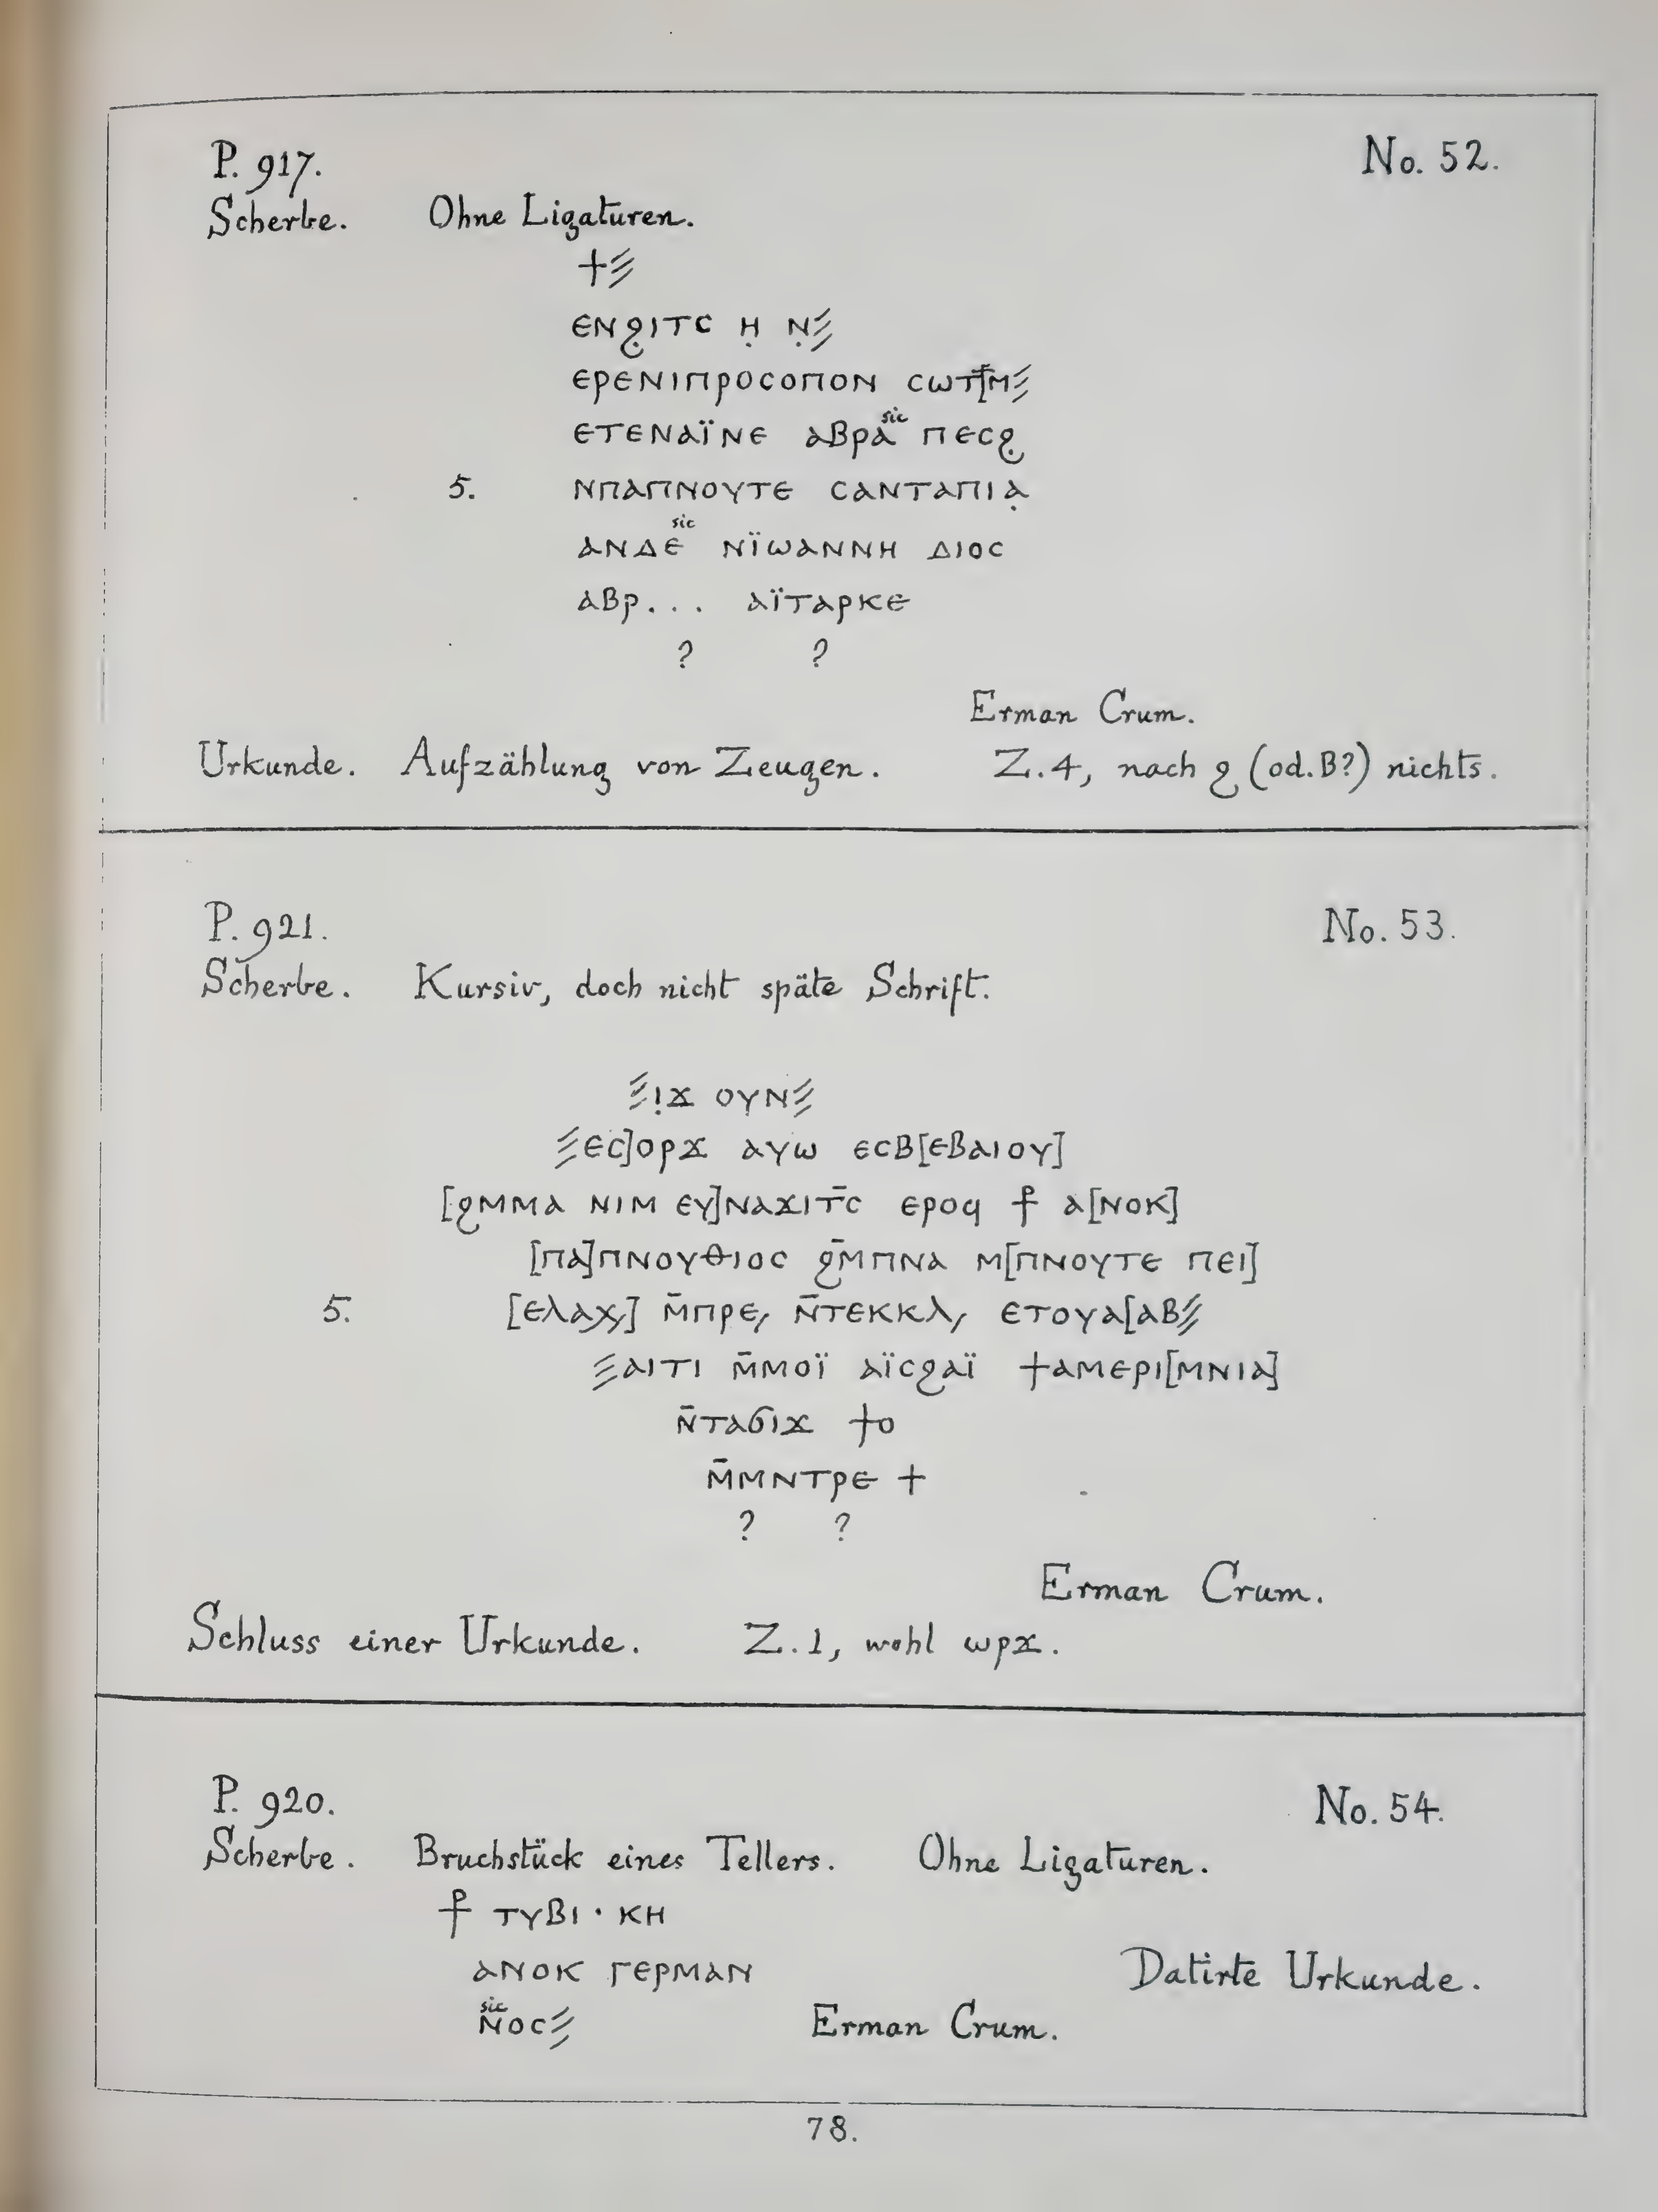 P. 917. No. 52.
Scherbe. Ohne Ligaturen.
+⫽
ⲉⲛϩⲓⲧⲥ ⲏ̣ ⲛ̣⫽
ⲉⲣⲉⲛⲓⲡⲣⲟⲥⲟⲡⲟⲛ ⲥⲱⲧⲙ̄⫽
ⲉⲧⲉⲛⲁⲓ̈ⲛⲉ ⲁⲃⲣⲁ sic ⲡⲉⲥϩ̣
5. ⲛⲡⲁⲡⲛⲟⲩⲧⲉ ⲥⲁⲛⲧⲁⲡⲓⲁ̣
ⲁⲛⲇⲉ sic ⲛⲓ̈ⲱⲁⲛⲛⲏ ⲇⲓⲟⲥ
ⲁⲃⲣ... ⲁⲓ̈ⲧⲁⲣⲕⲉ
? ?
Erman Crum.
Urkunde. Aufzählung von Zeugen. Z.4, nach ϩ (od. ⲃ?) nichts.
P. 921. No. 53.
Scherbe. Kursiv, doch nicht späte Schrift.
⫽ⲓ̣ϫ ⲟⲩⲛ⫽
⫽ⲉⲥ]ⲟⲣϫ ⲁⲩⲱ ⲉⲥⲃ[ⲉⲃⲁⲓⲟⲩ]
[ϩⲙⲙⲁ ⲛⲓⲙ ⲉⲩ]ⲛⲁϫⲓⲧ̄ⲥ ⲉⲣⲟϥ ⳨ ⲁ[ⲛⲟⲕ]
[ⲡⲁ]ⲡⲛⲟⲩⲑⲓⲟⲥ ϩⲙ̄ⲡⲛⲁ ⲙ[ⲡⲛⲟⲩⲧⲉ ⲡⲉⲓ]
5. [ⲉⲗⲁⲭ,] ⲙ̄ⲡⲣⲉ, ⲛ̄ⲧⲉⲕⲕⲗ, ⲉⲧⲟⲩⲁ[ⲁⲃ⫽
⫽ⲁⲓⲧⲓ ⲙ̄ⲙⲟⲓ̈ ⲁⲓ̈ⲥϩⲁⲓ̈ ϯⲁⲙⲉⲣⲓ[ⲙⲛⲓⲁ]
ⲛ̄ⲧⲁϭⲓϫ ϯⲟ
ⲙ̄ⲙⲛⲧⲣⲉ +
? ?
Erman Crum.
Schluss einer Urkunde. Z.1, wohl ⲱⲣϫ.
P. 920. No. 54.
Scherbe. Bruchstück eines Tellers. Ohne Ligaturen.
⳨ ⲧⲩⲃⲓ · ⲕⲏ
ⲁⲛⲟⲕ ⲅⲉⲣⲙⲁⲛ Datirte Urkunde.
sic ⲛ̄ⲟⲥ⫽ Erman Crum.
78.